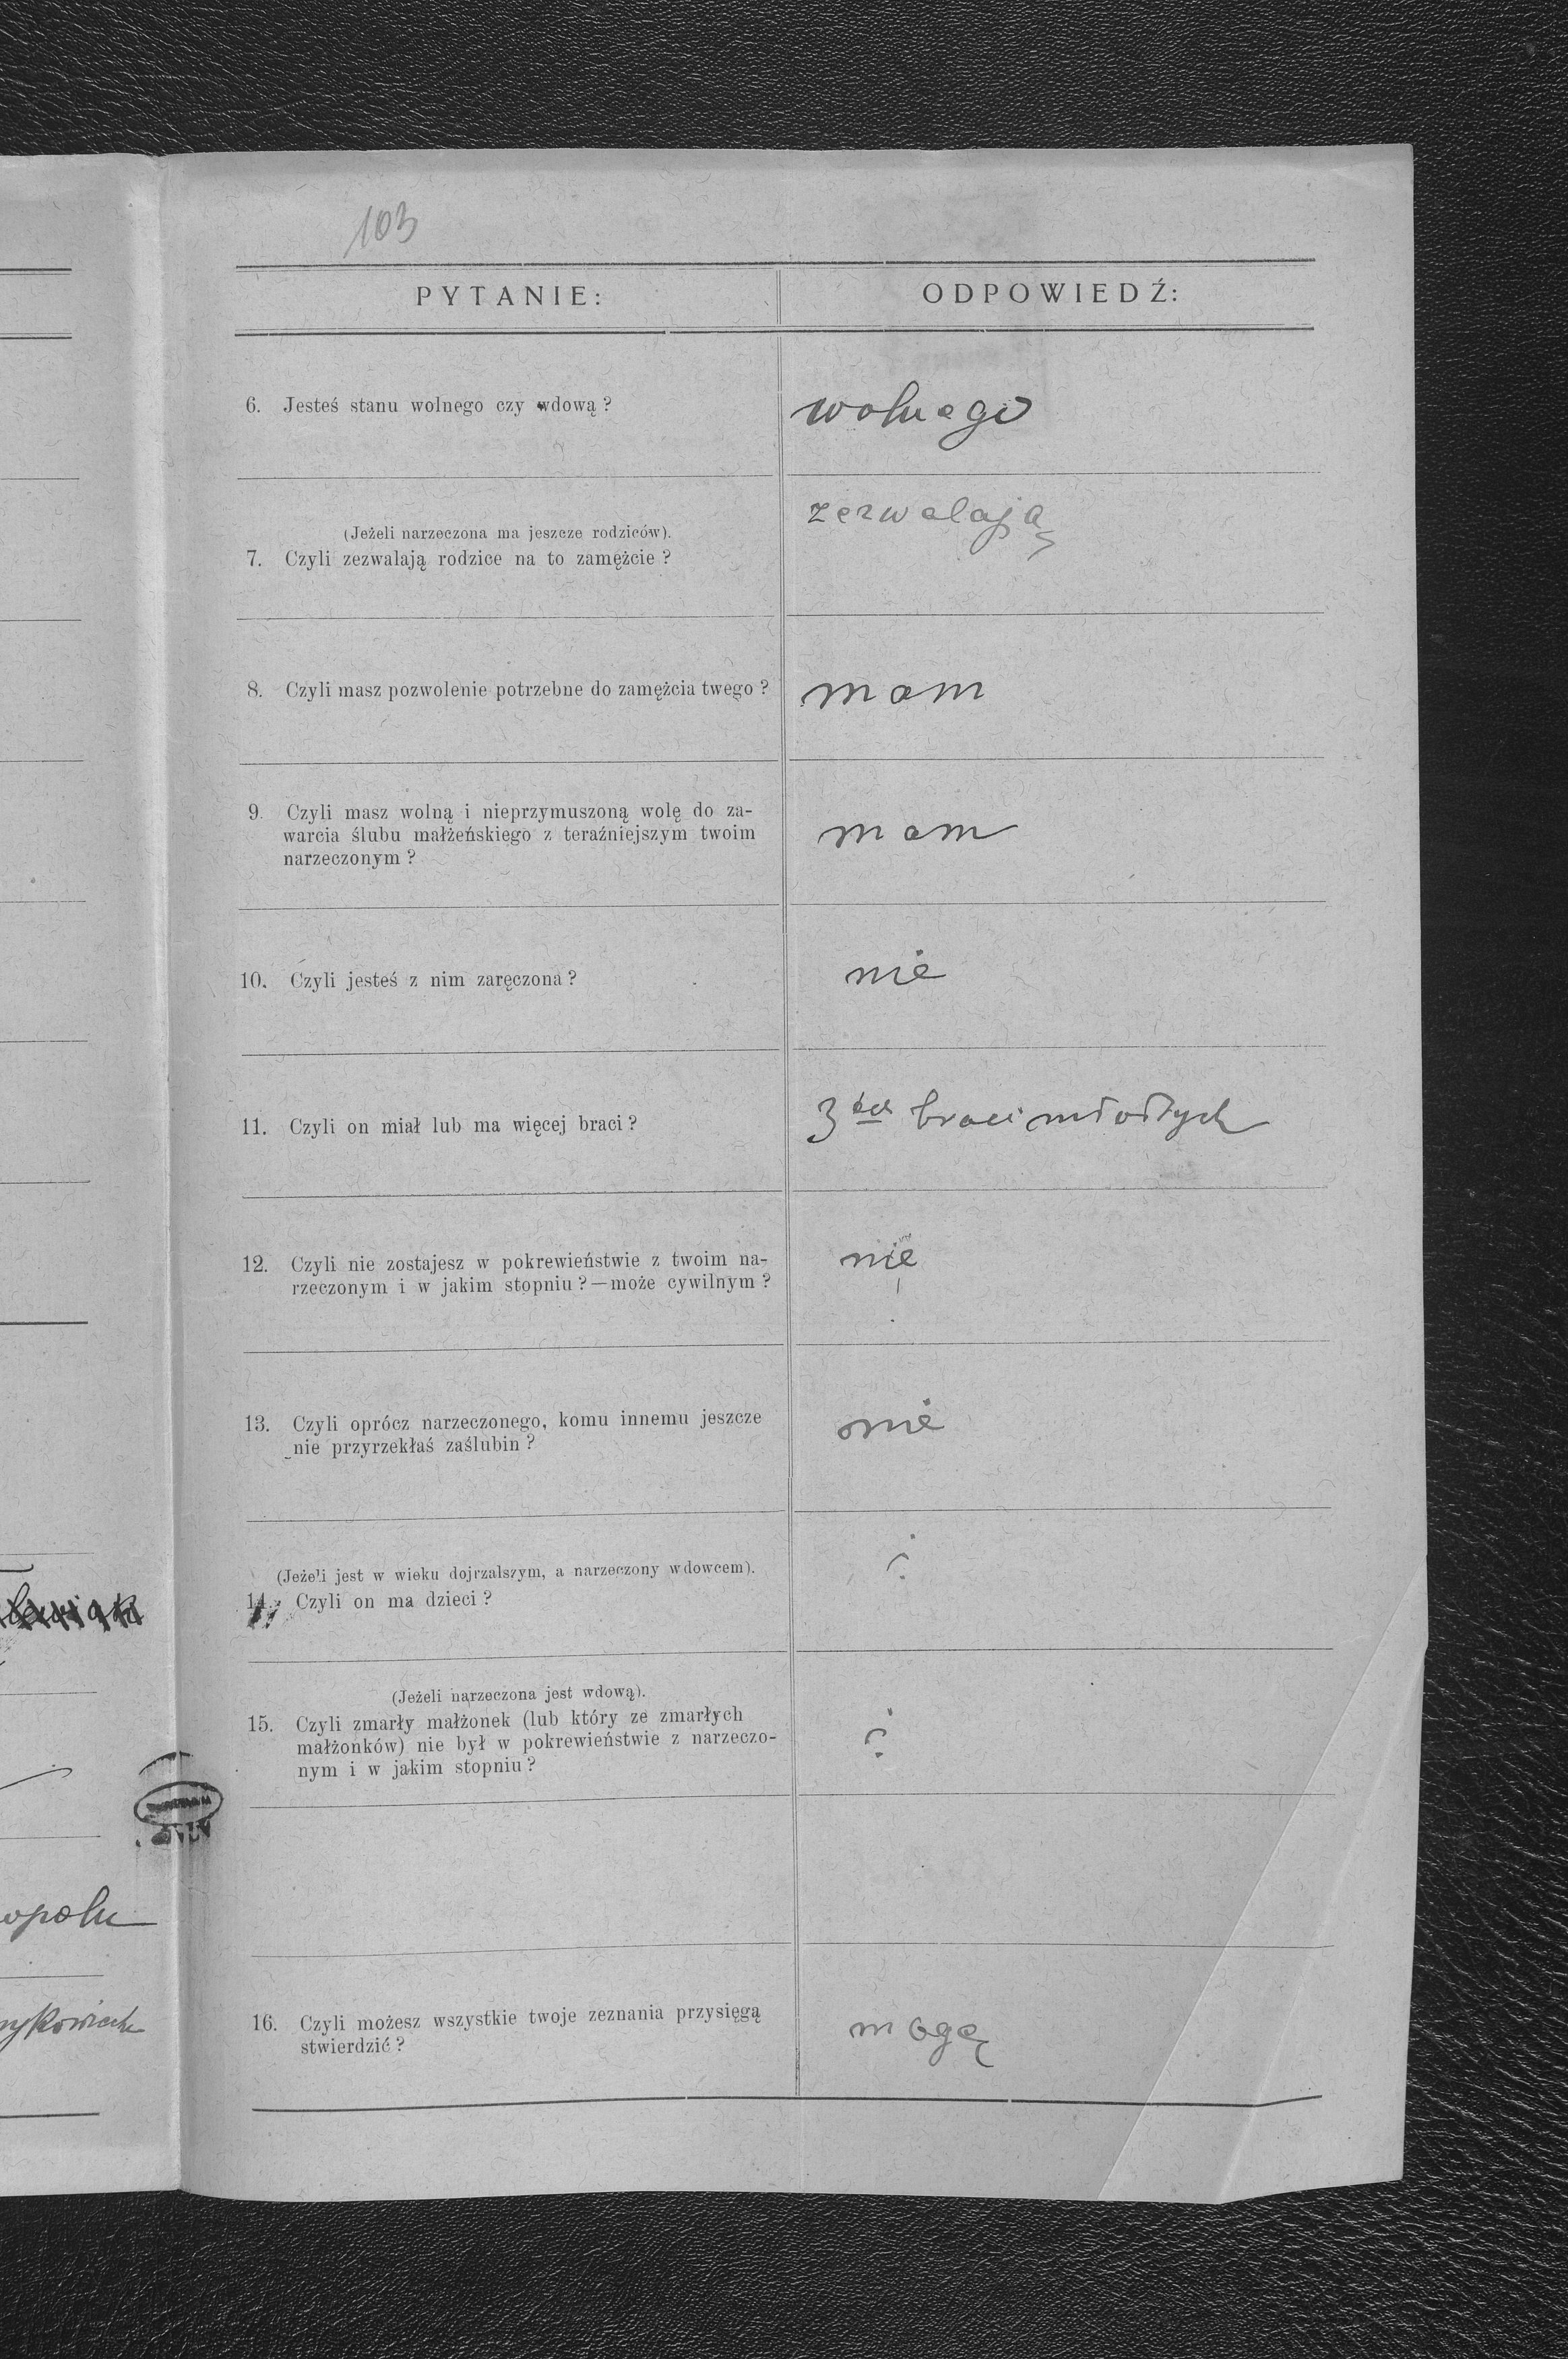 103
PYTANIE:
ODPOWIEDŹ:
6. Jesteś stanu wolnego czy wdową ?
wolnego
(Jeżeli narzeczona ma jeszcze rodziców).
7. Czyli zezwalają rodzice na to zamężcie ?
zezwalają
8. Czyli masz pozwolenie potrzebne do zamężcia twego ?
mam
9. Czyli masz wolną i nieprzymuszoną wolę do za-
warcia ślubu małżeńskiego z teraźniejszym twoim
narzeczonym ?
mam
10. Czyli jesteś z nim zaręczona ?
nie
11. Czyli on miał lub ma więcej braci ?
3 braci młodych
12. Czyli nie zostajesz w pokrewieństwie z twoim na-
rzeczonym i w jakim stopniu ? — może cywilnym ?
nie
13. Czyli oprócz narzeczonego, komu innemu jeszcze
nie przyrzekłaś zaślubin ?
nie
(Jeżeli jest w wieku dojrzalszym, a narzeczony wdowcem).
14. Czyli on ma dzieci ?
(Jeżeli narzeczona jest wdową).
15. Czyli zmarły małżonek (lub który ze zmarłych
małżonków) nie był w pokrewieństwie z narzeczo-
nym i w jakim stopniu ?
opolu
16. Czyli możesz wszystkie twoje zeznania przysięgą
stwierdzić ?
mogę